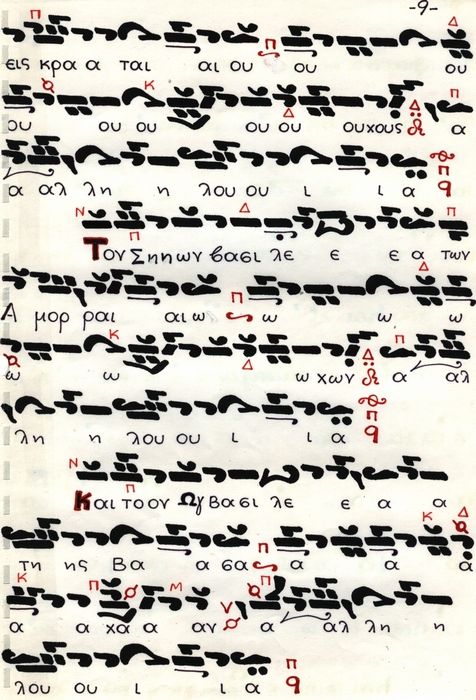 -9-
εις κρα α ται αι ου ου ου
ου ου ου ου ου ουχους α
α αλ λη η λου ου ι ι α
Τον Σηηων βασι λε ε ε α των
Α μορ ραι αι ω ω ω ω
ω ω ω χων α αλ
λη η λου ου ι ι α
Και το ον Ωγ βασι λε ε α α
τη ης Βα α ασα α α α
α α χα α αν α αλ λη η
λου ου ι ι α